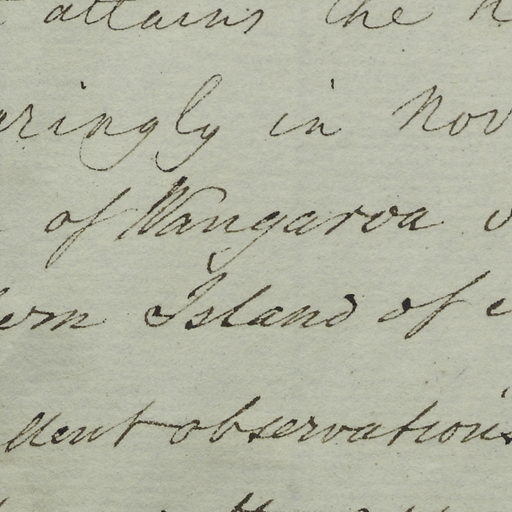 attains the
aringly in Nov
of Wangaroa
ern Island of
dent observations